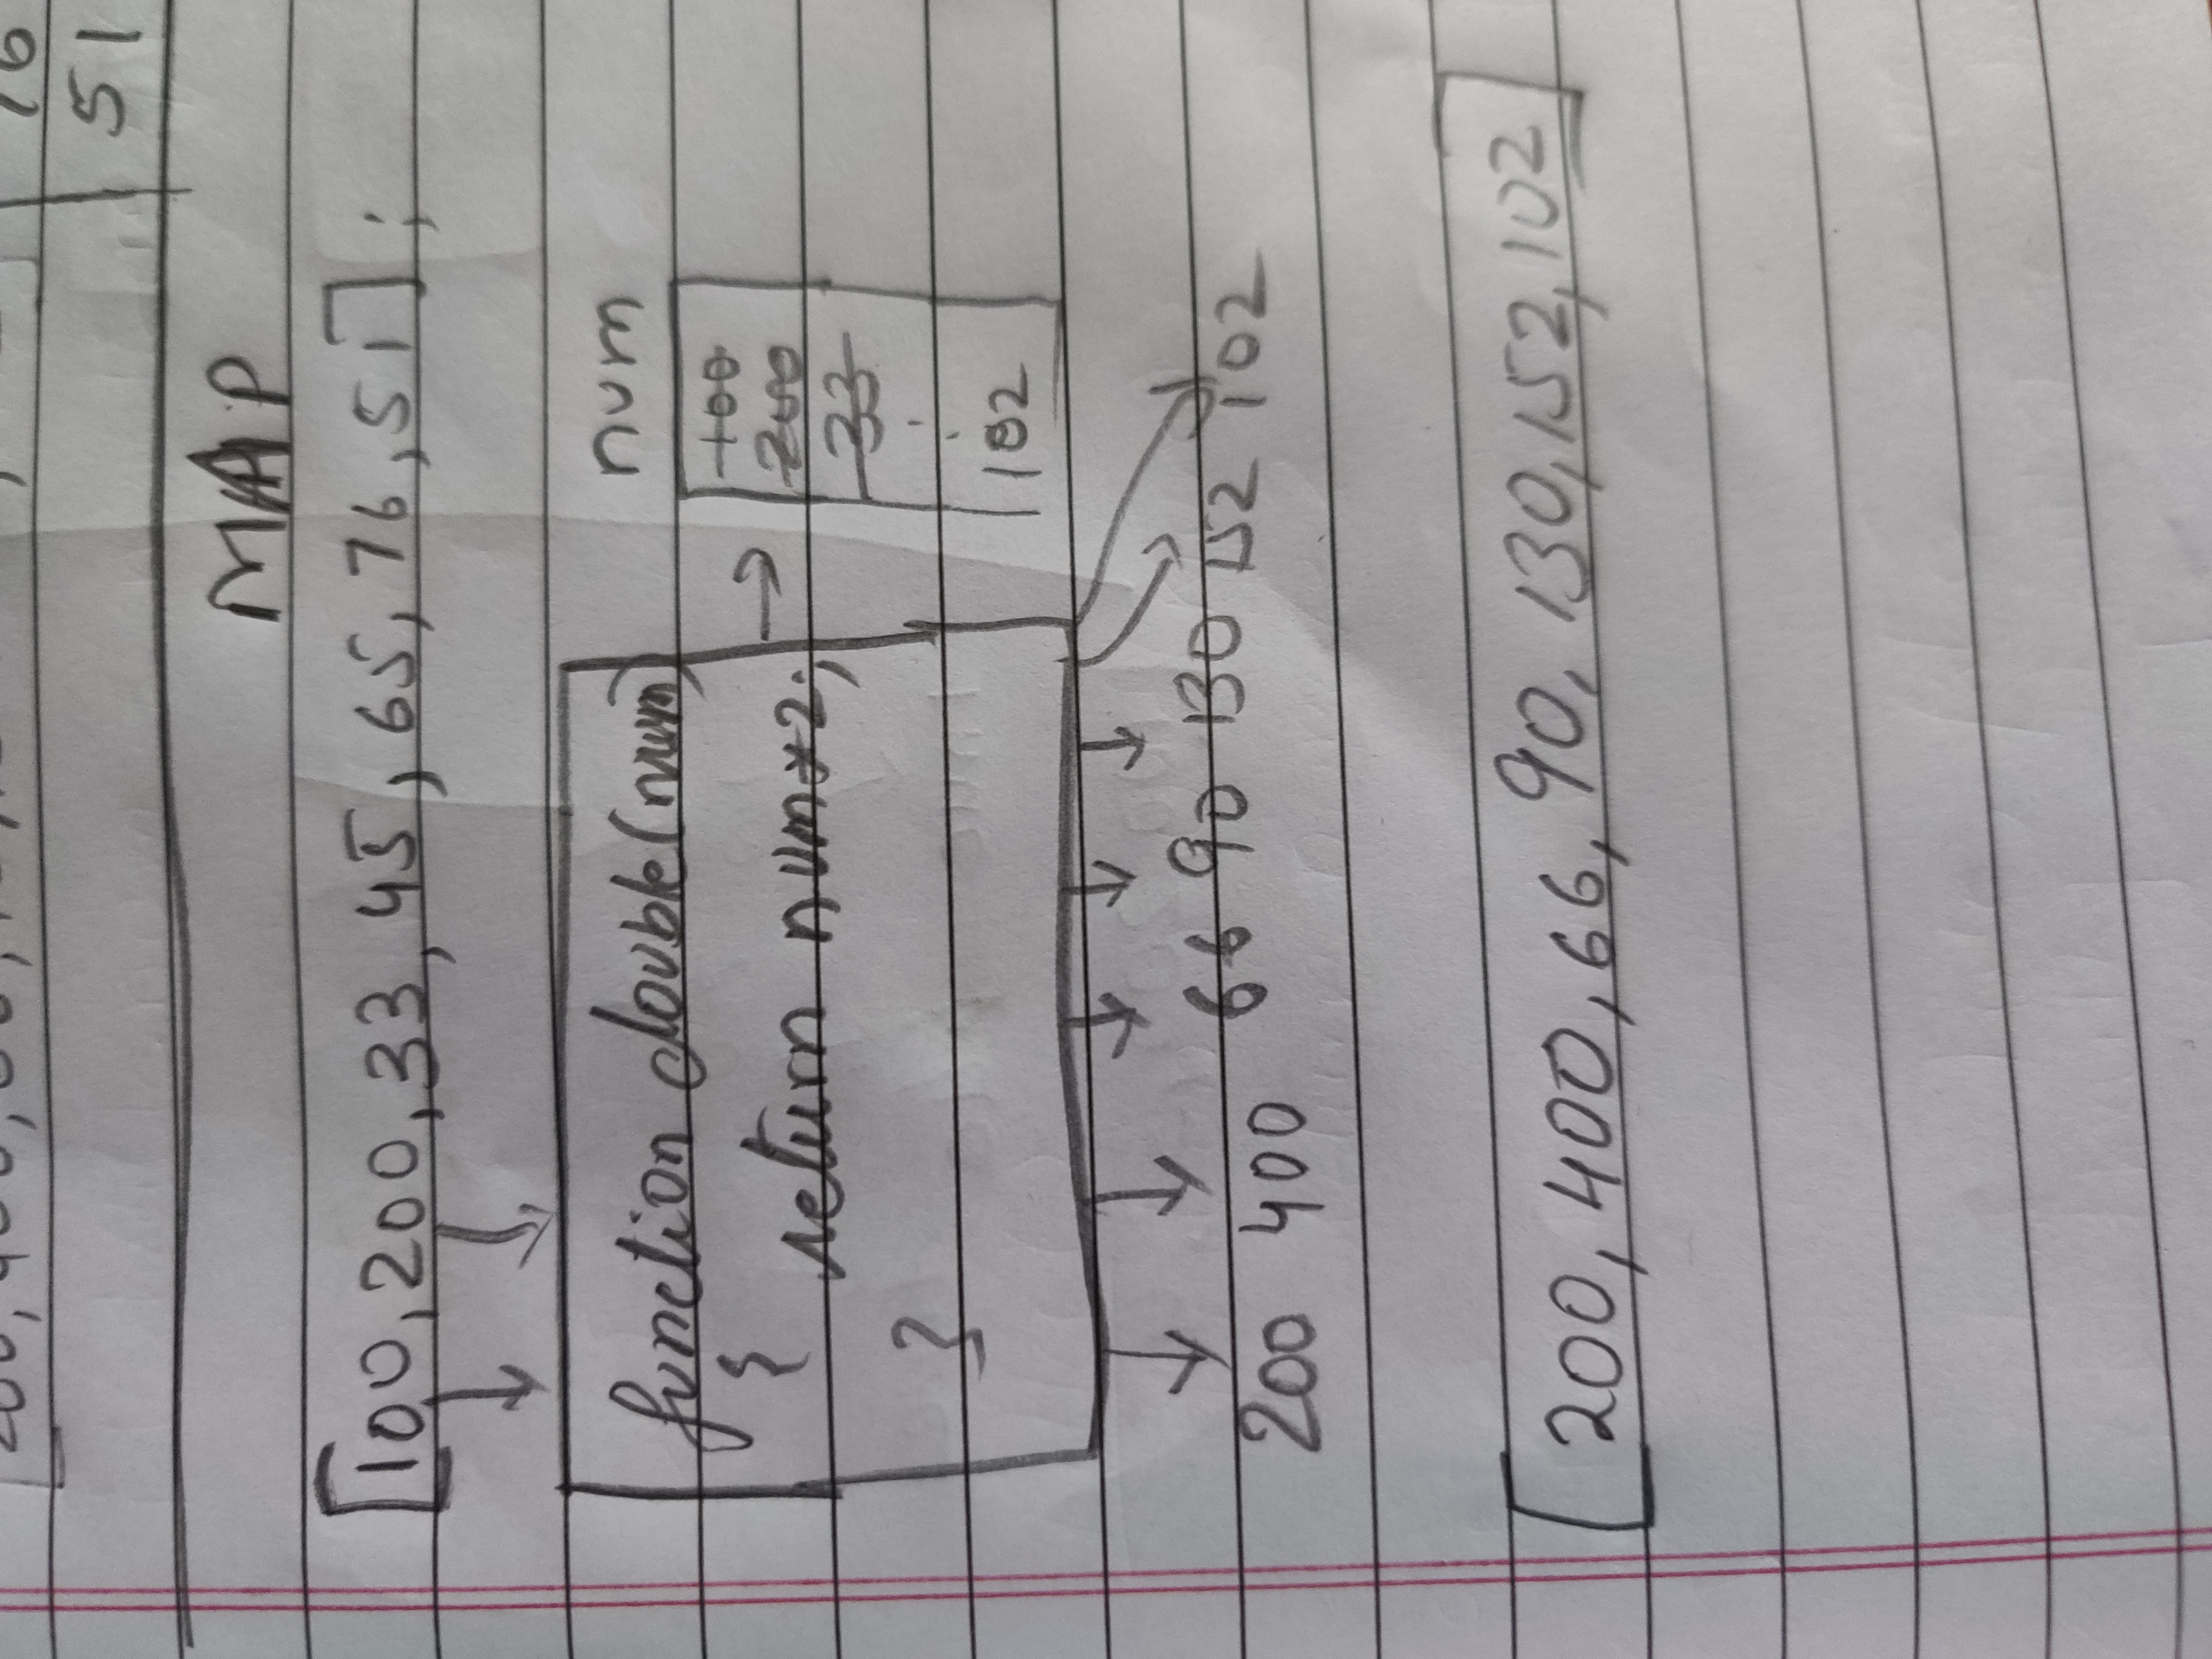 76
51
MAP
[100, 200, 33, 45, 65, 76, 51];
function double(num)
{
return num*2;
}
num
100
200
33
102
200 400 66 90 130 152 102
[200, 400, 66, 90, 130, 152, 102]